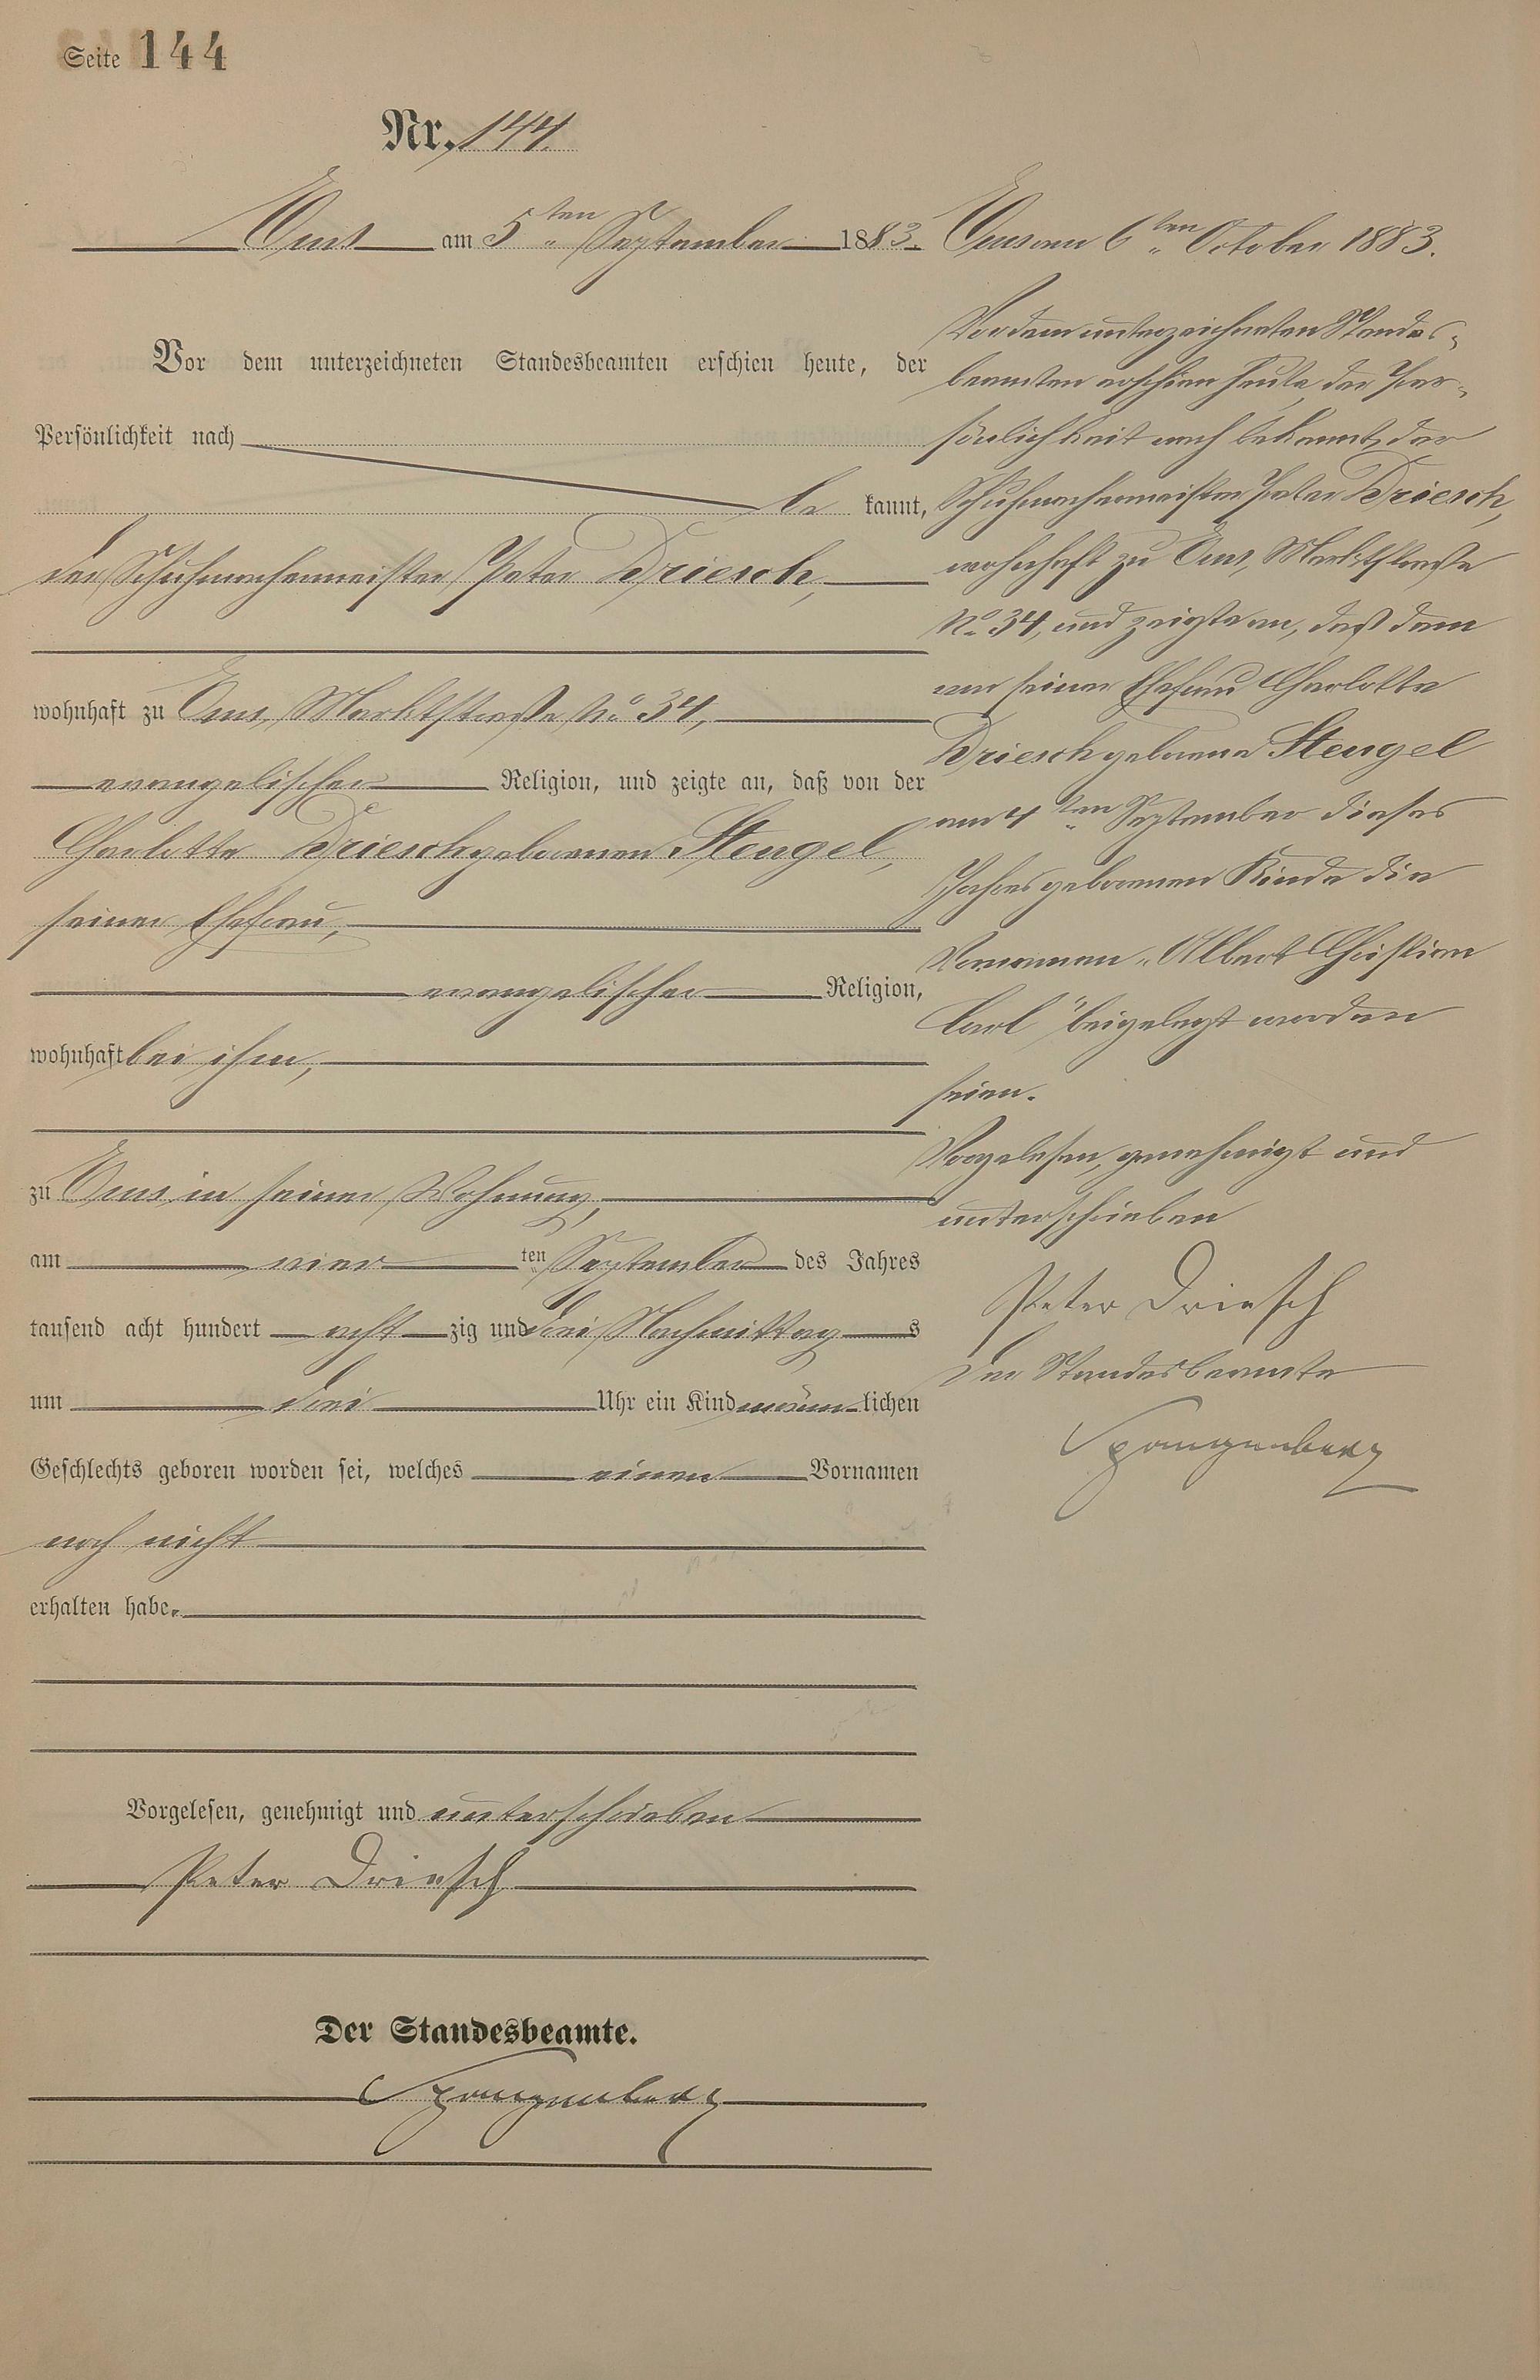 Seite 144
Nr. 144.
Ems am 5ten September 1883.
Vor dem unterzeichneten Standesbeamten erschien heute, der
Persönlichkeit nach
be kannt,
der Schuhmachermeister Peter Driesch,
wohnhaft zu Ems, Marktstraße No 34,
evangelischer Religion, und zeigte an, daß von der
Charlotte Driesch geborenen Stengel,
seiner Ehefrau,
evangelischer Religion,
wohnhaft bei ihm,
zu Ems in seiner Wohnung,
am vier ten September des Jahres
tausend acht hundert acht zig und drei Nachmittag s
um drei Uhr ein Kind männ lichen
Geschlechts geboren worden sei, welches einen Vornamen
noch nicht
erhalten habe.
Vorgelesen, genehmigt und unterschrieben
Peter Driesch
Der Standesbeamte.
Spangenberg
Ems am 6ten October 1883.
Vor dem unterzeichneten Standes-
beamten erschien heute, der Per-
sönlichkeit nach bekannt, der
Schuhmachermeister Peter Driesch,
wohnhaft zu Ems, Marktstraße
No. 34, und zeigte an, daß dem
von seiner Ehefrau Charlotte
Driesch geborene Stengel
am 4ten September dieses
Jahres geborenen Kinde die
Vornamen „Albert Christian
Carl" beigelegt worden
seien.
Vorgelesen, genehmigt und
unterschrieben
Peter Driesch
Der Standesbeamte
Spangenberg